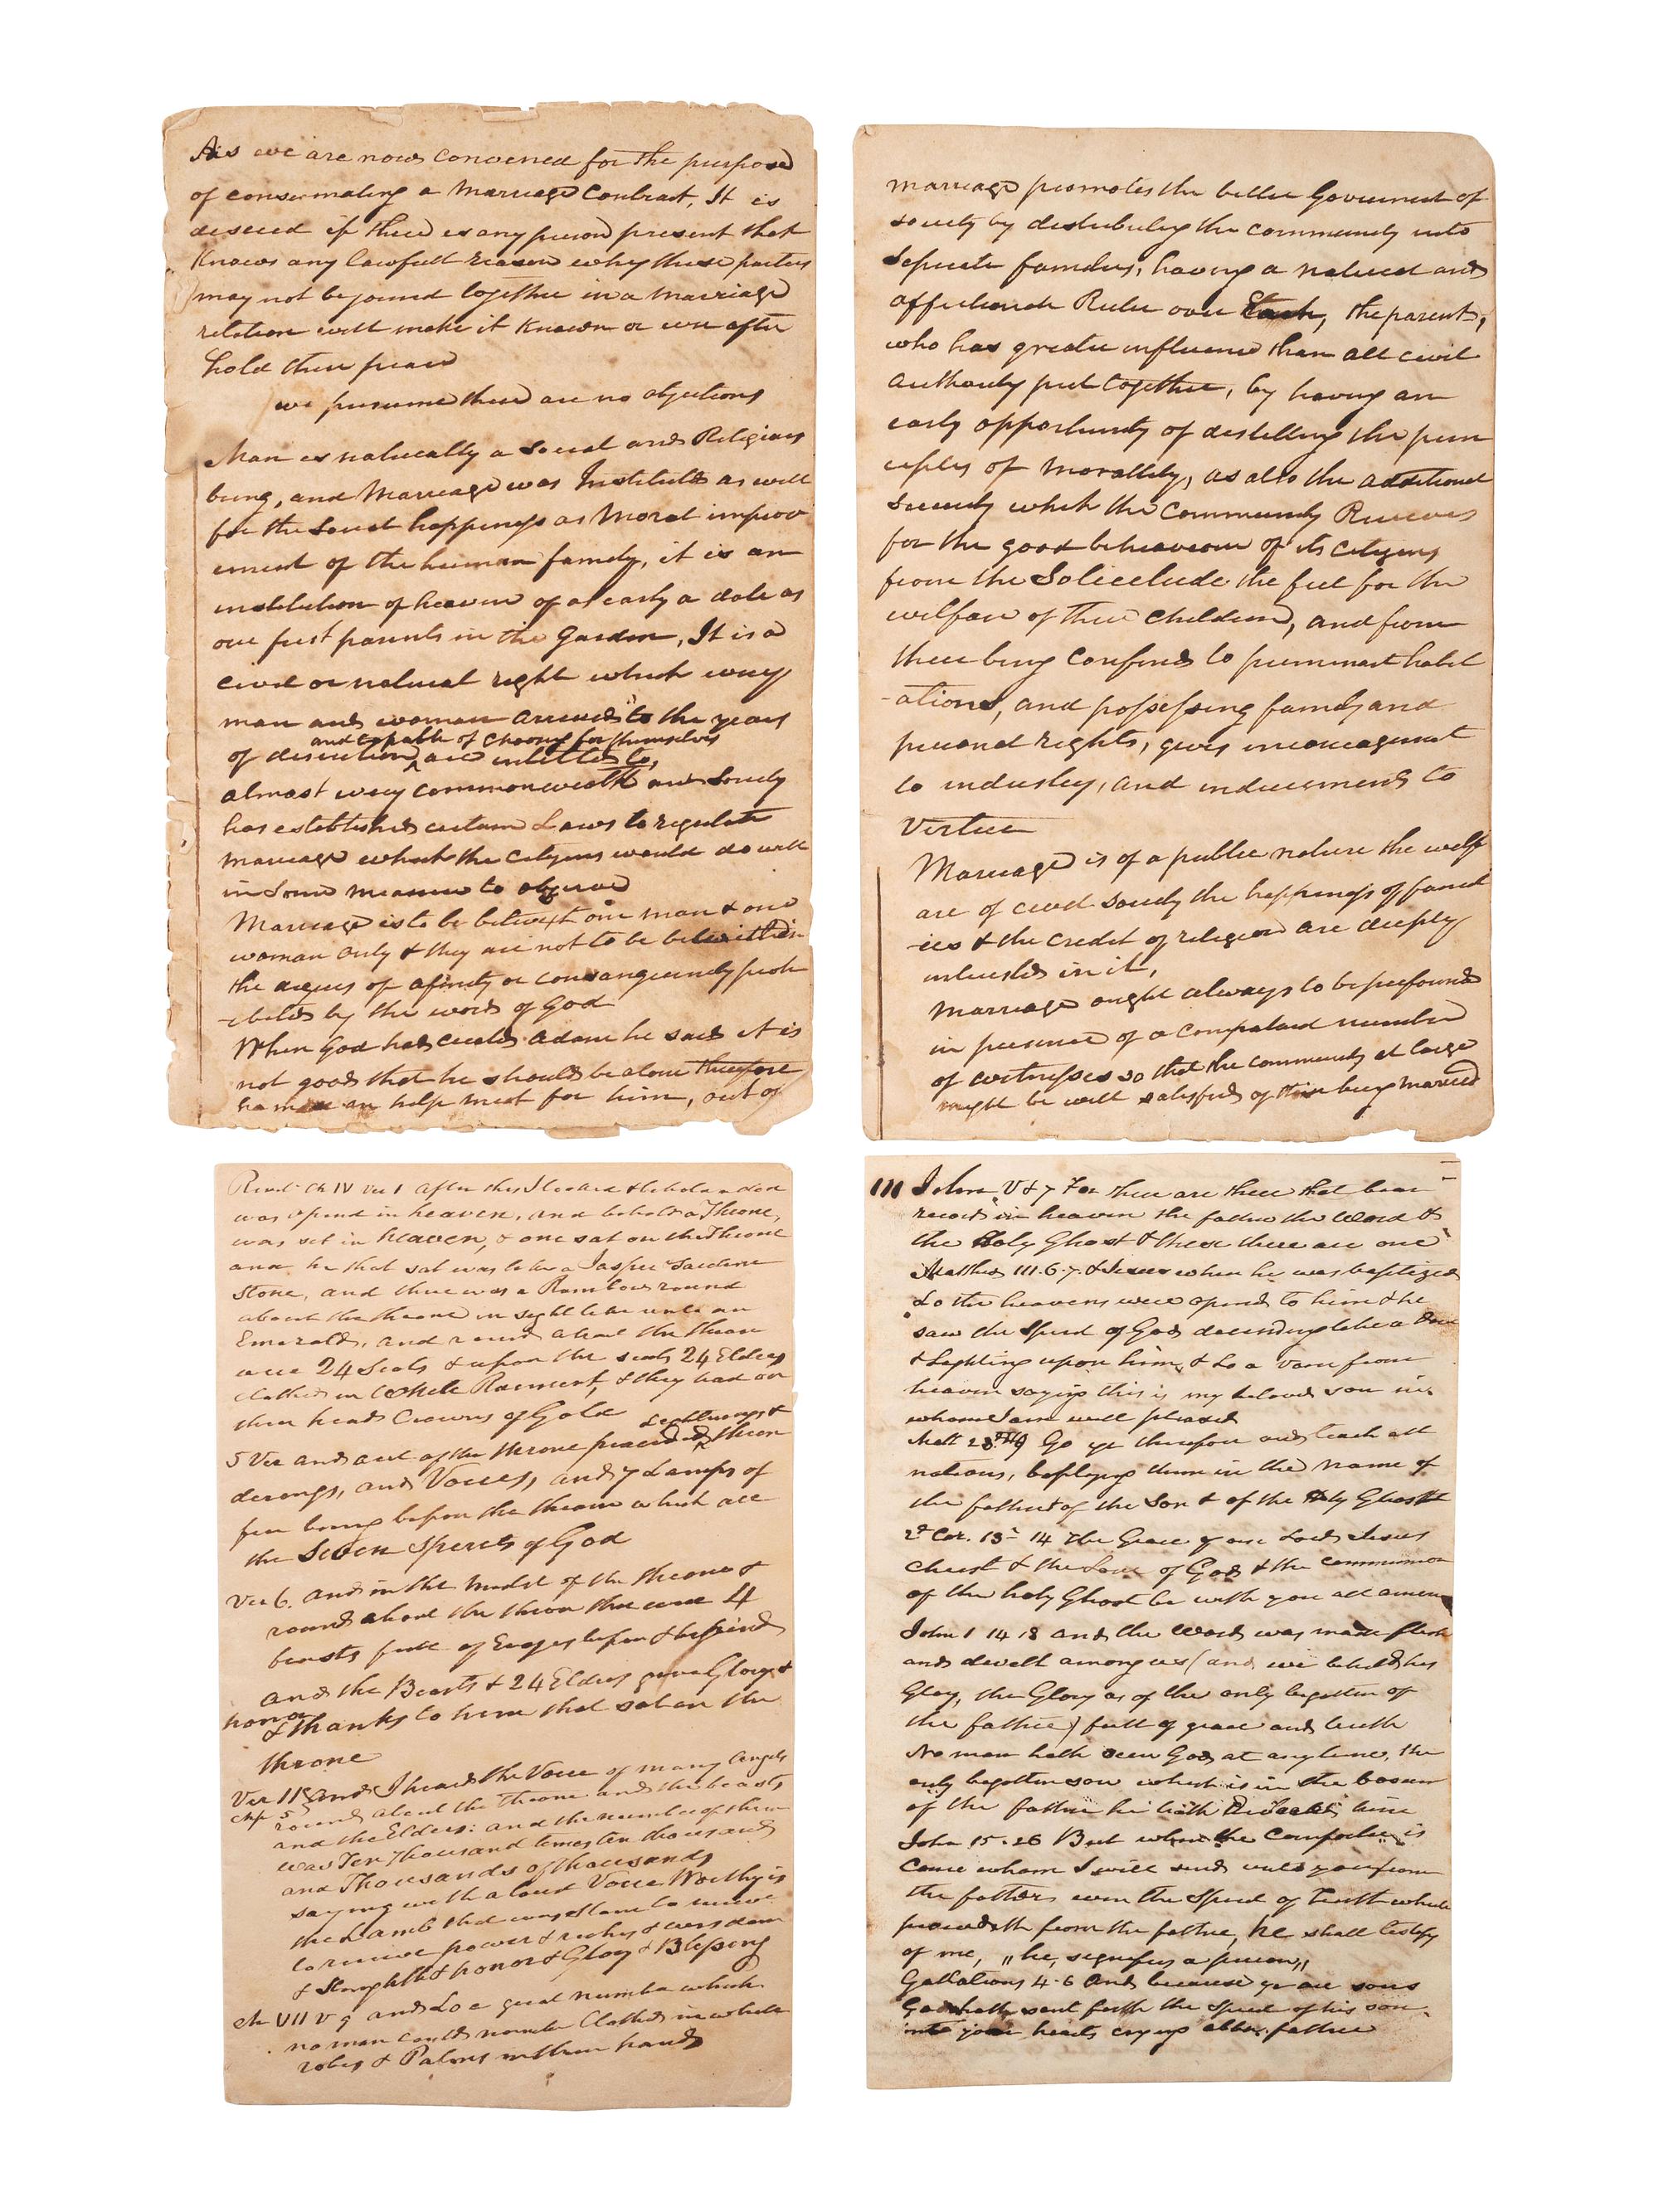 As we are now convened for the purpose
of consumating a Marriage Contract, It is
desired if there is any person present that
Knows any lawfull reason why these parties
may not be joined together in a Marriage
relation will make it known or ever after
hold their peace
we presume there are no objections
Man is naturally a Social and Religious
being, and Marriage was Instituted as well
for the Social happiness as Moral improv
ement of the human family, it is an
institution of heaven of as early a date as
our first parents in the Garden, It is a
civil or natural right which every
man and woman arrived to the years
and capable of choosing for themselves
of discretion, are intitled to,
almost every commonwealth and Society
has established certain Laws to regulate
Marriage which the Citizens would do well
in Some measure to observe
Marriage is to be betwixt one man & one
woman only & they are not to be within
the degrees of afinity or consanguinity proh
-ibited by the word of God
When God had created Adam he said it is
not good that he should be alone therefore
he made an help meet for him, out of
marriage promotes the better Government of
society by distributing the community into
Seperate families, having a natural and
affectionate Ruler over Each, the parent,
who has greater influence than all civil
Authority put together, by having an
early opportunity of distilling the prin
ciples of Morallity, as also the additional
Security which the Community Receives
for the good behaveour of its citizens
from the Solicitude the feel for the
welfare of their Children, and from
their being confined to permanent habit
-ations, and possessing family and
personal rights, gives incouragement
to industry, and inducements to
Virtue
Marriage is of a public nature the welf
are of civil Society the happiness of famil
-ies & the credit of religion are deeply
interested in it,
Marriage ought always to be performed
in presence of a competant number
of witnesses so that the community at large
might be well satisfied of their being married
Revel Ch IV Ver 1 after this I looked & behold a door
was opend in heaven, and behold a Throne,
was set in heaven, & one sat on the Throne
and he that sat was like a Jasper Sardine
Stone, and there was a Rainbow round
about the throne in sight like unto an
Emerald, and round about the throne
were 24 Seats & upon the seats 24 Elders
clothed in White Raiment, & they had on
their heads Crowns of Gold
Lightnings &
5 Ver and out of the throne proceeded thun
derings, and Voices, and 7 Lamps of
fire burning before the throne which are
the Seven Spirits of God
Ver 6. and in the midst of the throne &
round about the throne there were 4
beasts full of Eyes before & behind
and the Beasts & 24 Elders gave Glory &
honor
& thanks to him that sat on the
throne
Ver 11 and I heard the Voice of many Angels
chp 5 round about the Throne and the beasts
and the Elders: and the number of them
was Ten Thousand times ten thousand
and Thousands of thousands
saying with a loud Voice Worthy is
the Lamb that was slain to receive
to receive power & riches & wisdom
& Strenghth & honor & Glory & Blessing
Ch VII V 9 and Lo a great number which
no man could number Clothed in white
robes & Palms in their hands
111 John V & 7 For there are three that bear
record in heaven the father the Word &
the Holy Ghost & these three are one
Mathew III. 6. 7. & Jesus when he was baptized
Lo the heavens were opend to him & he
saw the Spirit of God decending like a Dove
& Lighting upon him, & Lo a voice from
heaven saying this is my beloved son in
whom I am well pleased
Matt 28 19 Go ye therefore and teach all
nations, baptizing them in the Name of
the father & of the Son & of the Holy Ghost
2d Cor. 13 - 14 The Grace of our Lord Jesus
Christ & the Love of God & the communion
of the holy Ghost be with you all amen
John 1 14 18 and the Word was made flesh
and dwelt among us (and we beheld his
Glory, the Glory as of the only begotten of
the father) full of grace and truth
No man hath seen God at any time, the
only begotten son which is in the bosom
of the father he hath declared him
John 15. 26 But when the Comforter is
Come whom I will send unto you from
the father even the Spirit of truth which
proceedeth from the father, he shall testify
of me, "he, signifies a person"
Gallations 4. 6 And because ye are sons
God hath sent forth the Spirit of his son
into your hearts crying abba father